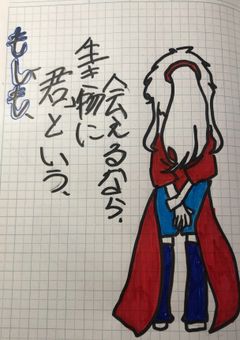 もしも、
「君」という、
生き物に
会えるなら、